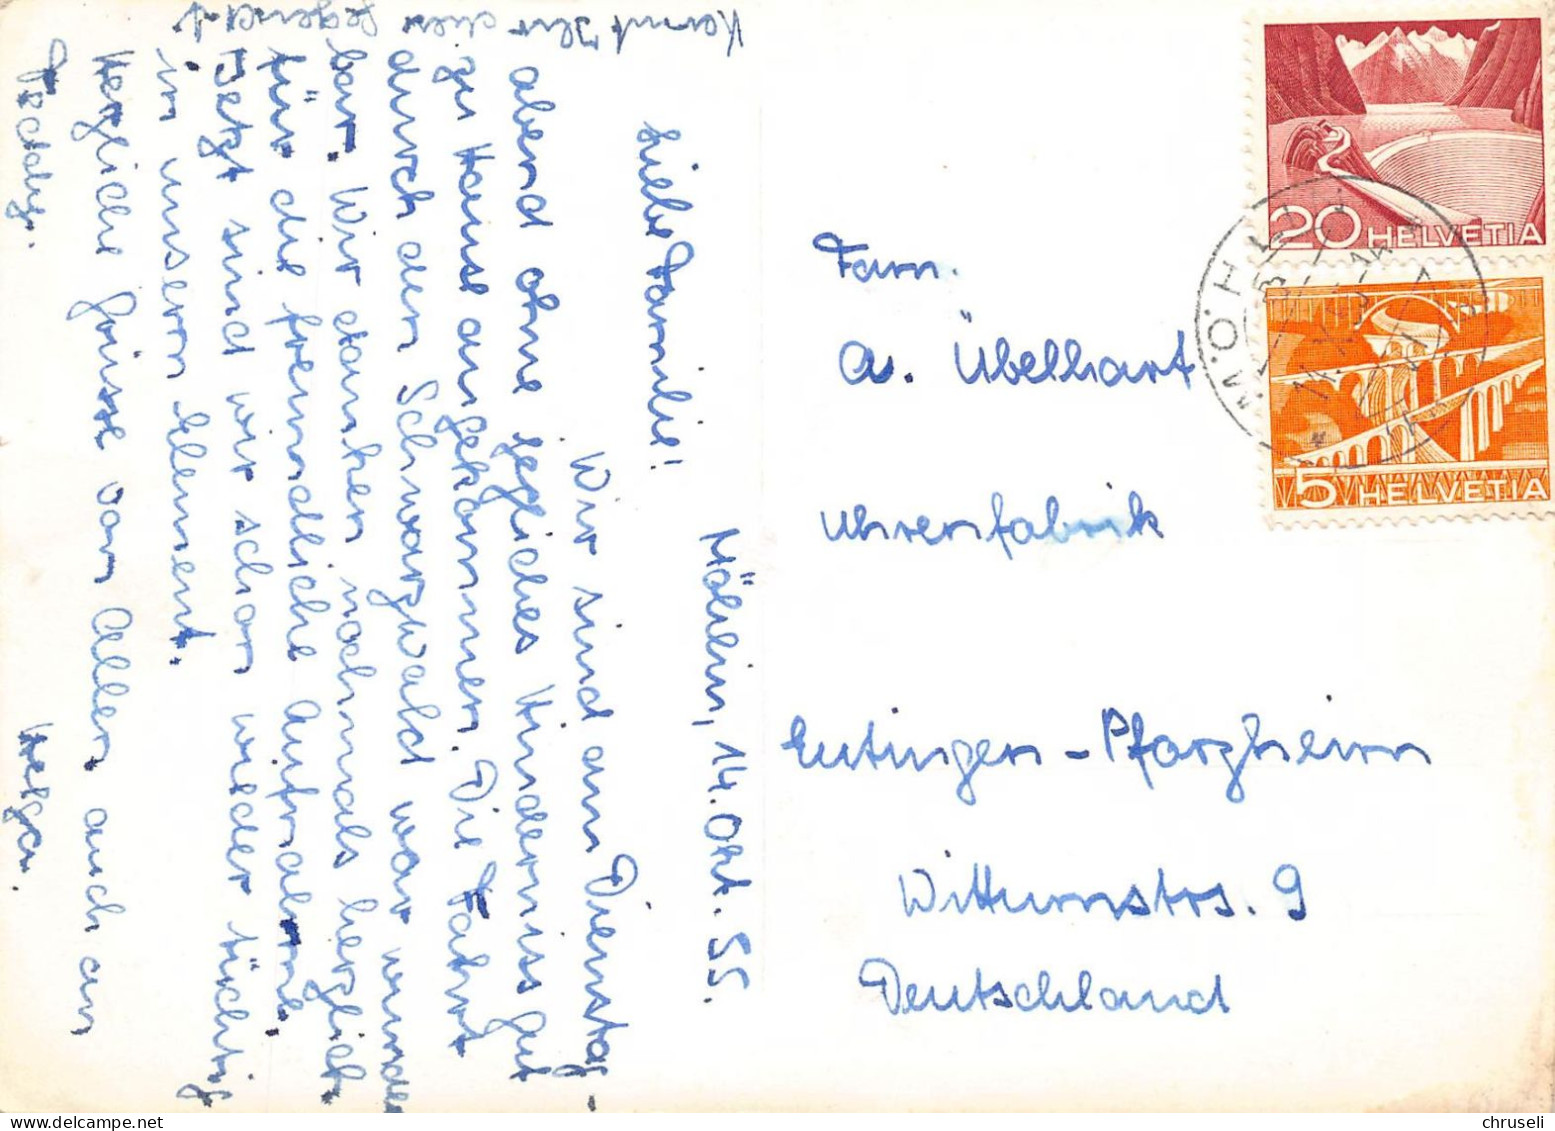 Möhlin, 14. Okt. 55.
Liebe Familie!
Wir sind am Dienstag-
abend ohne jegliches Hinderniss gut
zu Hause angekommen. Die Fahrt
durch den Schwarzwald war wunder
bar. Wir danken nochmals herzlich
für die freundliche Aufnahme.
Jetzt sind wir schon wieder tüchtig
in unserm Element.
Herzliche Grüsse von Allen auch an
Teddy. Helga.
Kennt Ihr diese Gegend?
Fam.
A. Übelhart
Uhrenfabrik
Eutingen - Pforzheim
Wittumstrs. 9
Deutschland
20 HELVETIA
5 HELVETIA
MÖHLIN
chruseli